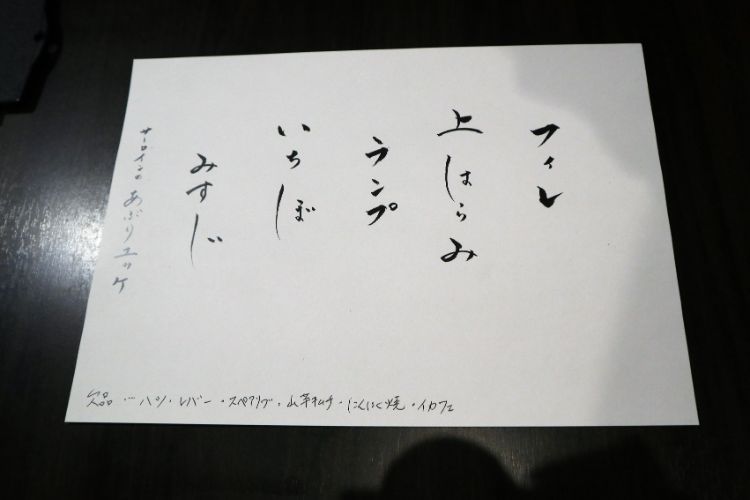 フィレ
上はらみ
ランプ
いちぼ
みすじ
サーロインのあぶりユッケ
欠品…ハツ・レバー・スペアリブ・山芋キムチ・にんにく焼・イカフェ